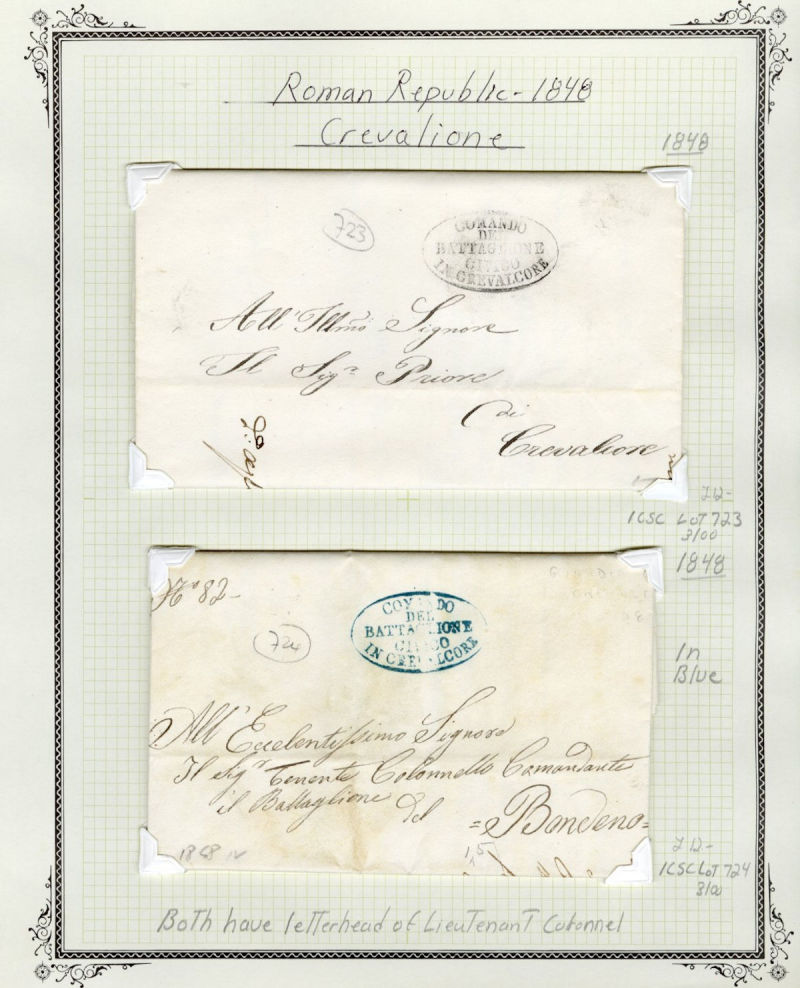 Roman Republic - 1848
Crevalione
1848
723
COMANDO
DEL
BATTAGLIONE
CIVICO
IN CREVALCORE
All' Illmo Signore
Il Sigr Priore
di
Crevalcore
J 12-
ICSC LOT 723
3/00
1848
No 82-
724
COMANDO
DEL
BATTAGLIONE
CIVICO
IN CREVALCORE
In
Blue
All' Eccelentissimo Signore
Il Sigr Tenente Colonnello Comandante
il Battaglione del
=Bondeno=
1848 IV
J 12-
ICSC LOT 724
3/00
Both have letterhead of Lieutenant Colonnel